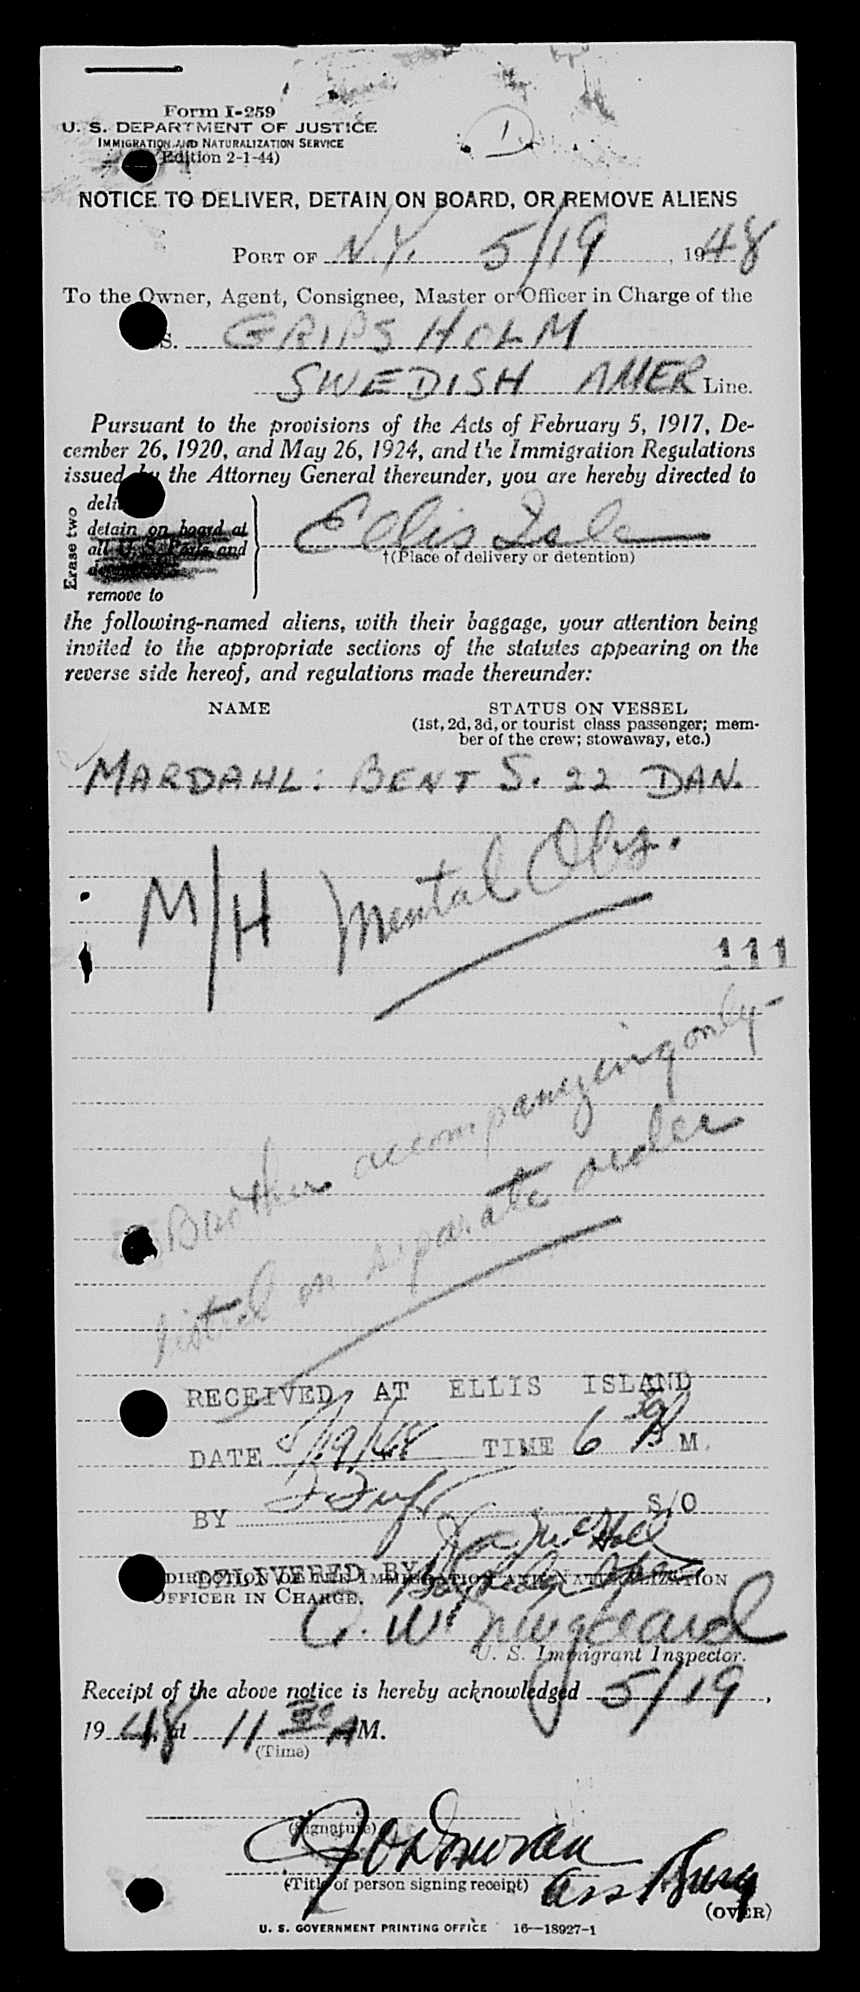 Form I-259
U. S. DEPARTMENT OF JUSTICE
IMMIGRATION AND NATURALIZATION SERVICE
(Edition 2-1-44)
1
NOTICE TO DELIVER, DETAIN ON BOARD, OR REMOVE ALIENS
PORT OF N.Y. 5/19, 1948
To the Owner, Agent, Consignee, Master or Officer in Charge of the
S. GRIPSHOLM
SWEDISH AMER Line.
Pursuant to the provisions of the Acts of February 5, 1917, De-
cember 26, 1920, and May 26, 1924, and the Immigration Regulations
issued by the Attorney General thereunder, you are hereby directed to
Erase two
deli
detain on board at
all U. S. Ports and
remove to
Ellis Isle
†(Place of delivery or detention)
the following-named aliens, with their baggage, your attention being
invited to the appropriate sections of the statutes appearing on the
reverse side hereof, and regulations made thereunder:
NAME STATUS ON VESSEL
(1st, 2d, 3d, or tourist class passenger; mem-
ber of the crew; stowaway, etc.)
MARDAHL: BENT S. 22 DAN.
M/H Mental Obs.
111
Brother accompanying only-
listed on separate order
RECEIVED AT ELLIS ISLAND
DATE 5/19/48 TIME 6 30 P M.
BY S/O
DELIVERED BY
DIRECTION OF THE IMMIGRATION AND NATURALIZATION
OFFICER IN CHARGE.
U. S. Immigrant Inspector.
Receipt of the above notice is hereby acknowledged 5/19,
1948, at 11 AM.
(Time)
(Signature)
J O'Donovan
(Title of person signing receipt)
(OVER)
U. S. GOVERNMENT PRINTING OFFICE 16—18927-1